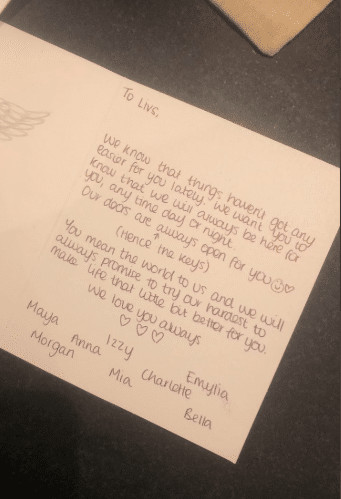 To Livs,
We know that things haven't got any
easier for you lately. We want you to
know that we will always be here for
you, any time day or night.
Our doors are always open for you☺♡
(Hence the keys)
You mean the world to us and we will
always promise to try our hardest to
make life that little bit better for you.
We love you always
♡ ♡ ♡
Maya Anna Izzy Emylia
Morgan Mia Charlotte Bella